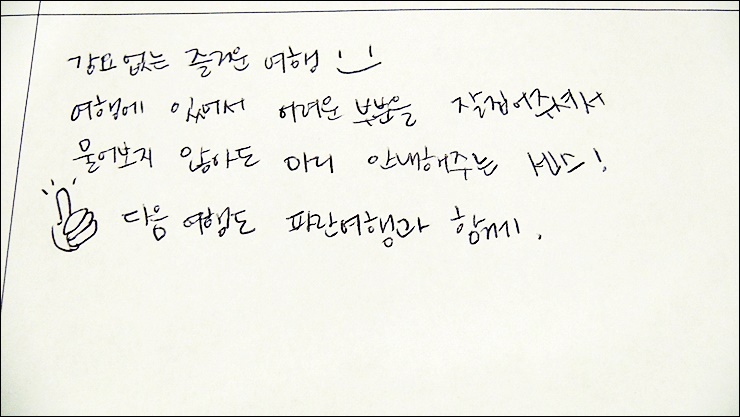 강요없는 즐거운 여행
여행에 있어서 어려운 부분을 잘집어주셔서
물어보지 않아도 미리 안내해주는 센스!
다음 여행도 파란여행과 함께.